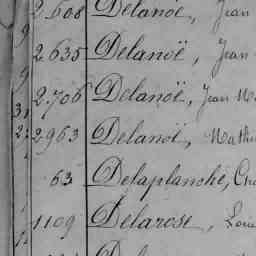 2.608 Delanoë, Jean
2.635 Delanoë, Jean
2.706 Delanoë, Jean
2.963 Delanoë,
63 Delaplanche,
1109 Delarose, Loui